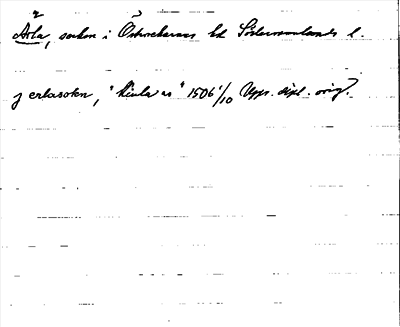 Ärla, socken i Österrekarnes hd Södermanlands l.
j erlasokn, " " 1506 1/10 Upps. dipl. orig.